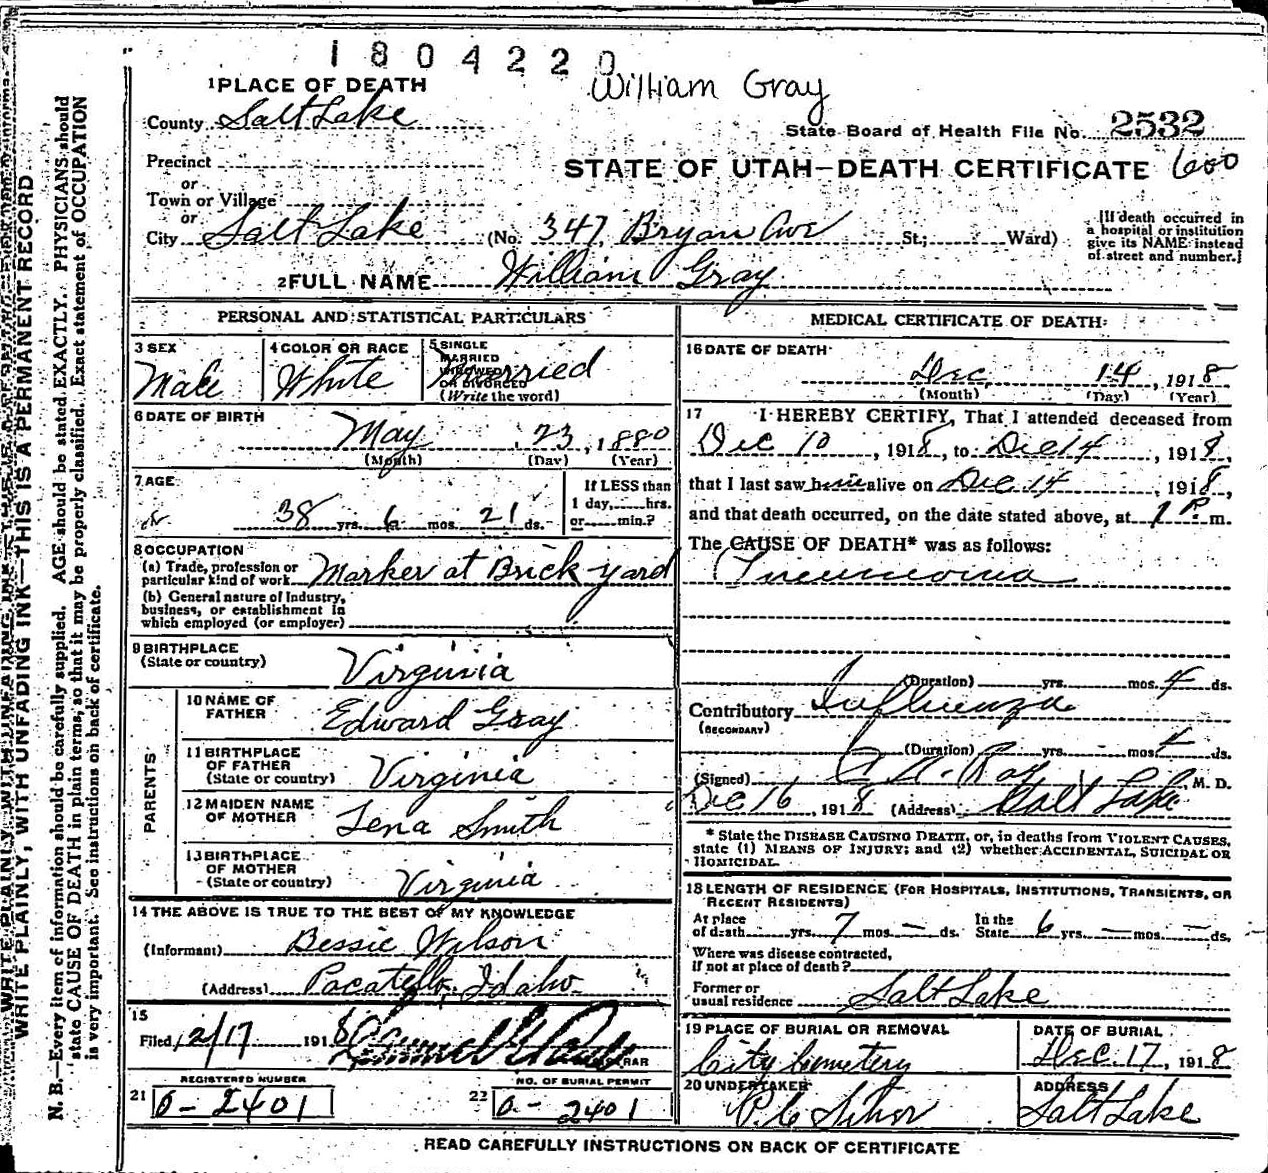 1804220
William Gray
1 PLACE OF DEATH
County Salt Lake
State Board of Health File No. 2532
Precinct
STATE OF UTAH—DEATH CERTIFICATE 600
or
Town or Village
or
City Salt Lake (No. 347 Bryan Ave St.; Ward)
[If death occurred in a hospital or institution give its NAME instead of street and number.]
2 FULL NAME William Gray
PERSONAL AND STATISTICAL PARTICULARS
3 SEX Male
4 COLOR OR RACE White
5 SINGLE MARRIED WIDOWED OR DIVORCED (Write the word) Married
6 DATE OF BIRTH May 23, 1880
(Month) (Day) (Year)
7 AGE 38 yrs. 6 mos. 21 ds.
If LESS than 1 day, hrs. or min.?
8 OCCUPATION
(a) Trade, profession or particular kind of work Marker at Brick yard
(b) General nature of Industry, business, or establishment in which employed (or employer)
9 BIRTHPLACE (State or country) Virginia
PARENTS
10 NAME OF FATHER Edward Gray
11 BIRTHPLACE OF FATHER (State or country) Virginia
12 MAIDEN NAME OF MOTHER Lena Smith
13 BIRTHPLACE OF MOTHER (State or country) Virginia
14 THE ABOVE IS TRUE TO THE BEST OF MY KNOWLEDGE
(Informant) Bessie Wilson
(Address) Pacatello, Idaho
15
Filed 12/17 1918
REGISTRAR
REGISTERED NUMBER
21 O-2401
NO. OF BURIAL PERMIT
22 O-2401
MEDICAL CERTIFICATE OF DEATH
16 DATE OF DEATH
Dec 14, 1918
(Month) (Day) (Year)
17 I HEREBY CERTIFY, That I attended deceased from
Dec 10, 1918, to Dec 14, 1918,
that I last saw him alive on Dec 14 1918,
and that death occurred, on the date stated above, at 1 P. m.
The CAUSE OF DEATH* was as follows:
Pneumonia
(Duration) yrs. mos. 4 ds.
Contributory Influenza
(SECONDARY)
(Duration) yrs. mos. 4 ds.
(Signed) Ray, M. D.
Dec 16, 1918 (Address) Salt Lake
* State the DISEASE CAUSING DEATH, or, in deaths from VIOLENT CAUSES, state (1) MEANS OF INJURY; and (2) whether ACCIDENTAL, SUICIDAL OR HOMICIDAL.
18 LENGTH OF RESIDENCE (FOR HOSPITALS, INSTITUTIONS, TRANSIENTS, OR RECENT RESIDENTS)
At place of death yrs. 7 mos. — ds. In the State 6 yrs. — mos. — ds.
Where was disease contracted, if not at place of death?
Former or usual residence Salt Lake
19 PLACE OF BURIAL OR REMOVAL City Cemetery
DATE OF BURIAL Dec. 17, 1918
20 UNDERTAKER
ADDRESS Salt Lake
READ CAREFULLY INSTRUCTIONS ON BACK OF CERTIFICATE
WRITE PLAINLY, WITH UNFADING INK—THIS IS A PERMANENT RECORD
N. B.—Every item of information should be carefully supplied. AGE should be stated EXACTLY. PHYSICIANS should
state CAUSE OF DEATH in plain terms, so that it may be properly classified. Exact statement of OCCUPATION
is very important. See instructions on back of certificate.